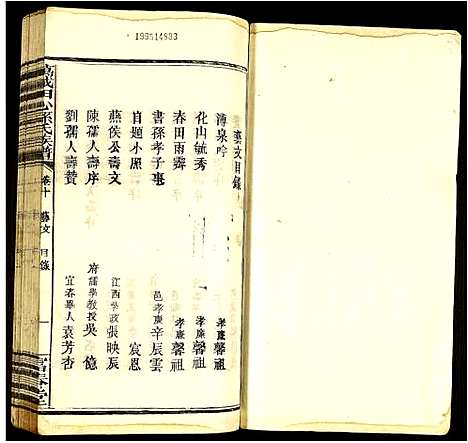 199514893
藝文目錄
薄泉吟 孝廉馨祖
花山毓秀 孝廉馨祖
春田雨霽 孝廉馨祖
書孫孝子事 邑孝廉辛辰雲
自題小照 宸恩
燕侯公壽文 江西學政張映辰
陳孺人壽序 府儒學教授吳億
劉孺人壽贊 宜春舉人袁芳杏
萬載田心孫氏族譜 卷十 藝文 目錄 一 富春堂